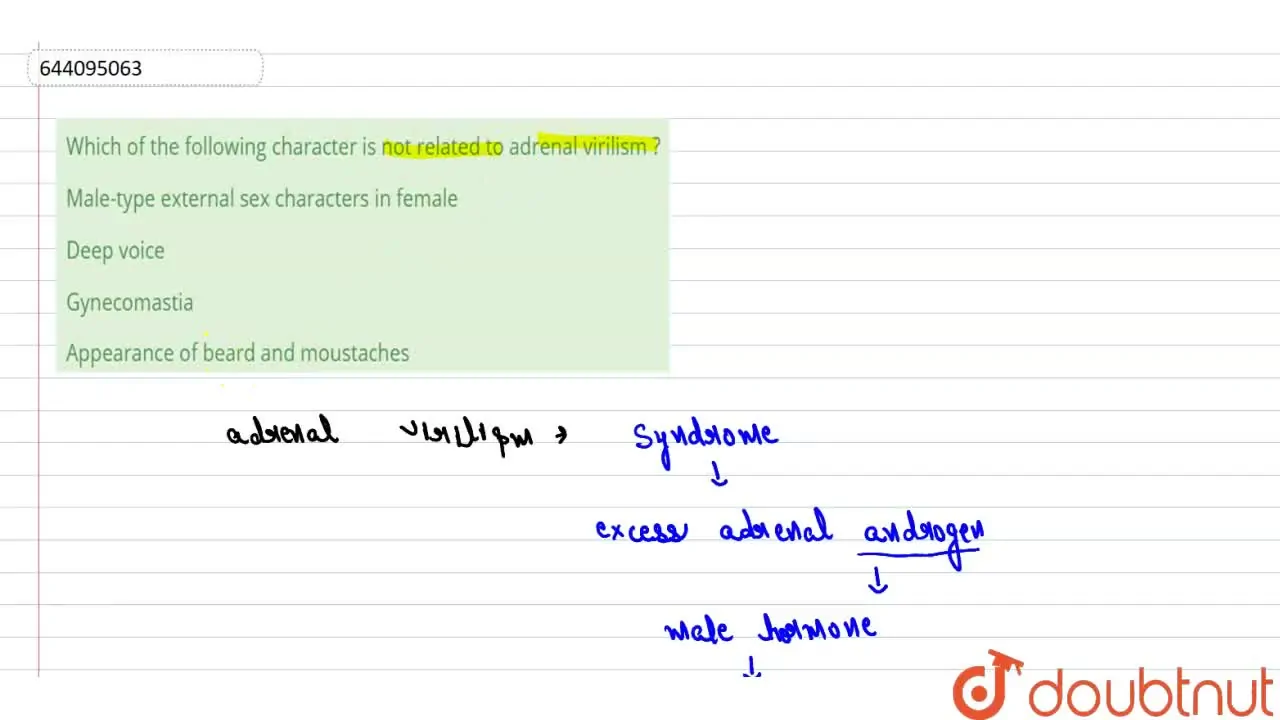 644095063
Which of the following character is not related to adrenal virilism ?
Male-type external sex characters in female
Deep voice
Gynecomastia
Appearance of beard and moustaches
adrenal virilism → Syndrome
↓
excess adrenal androgen
↓
male hormone
↓
doubtnut